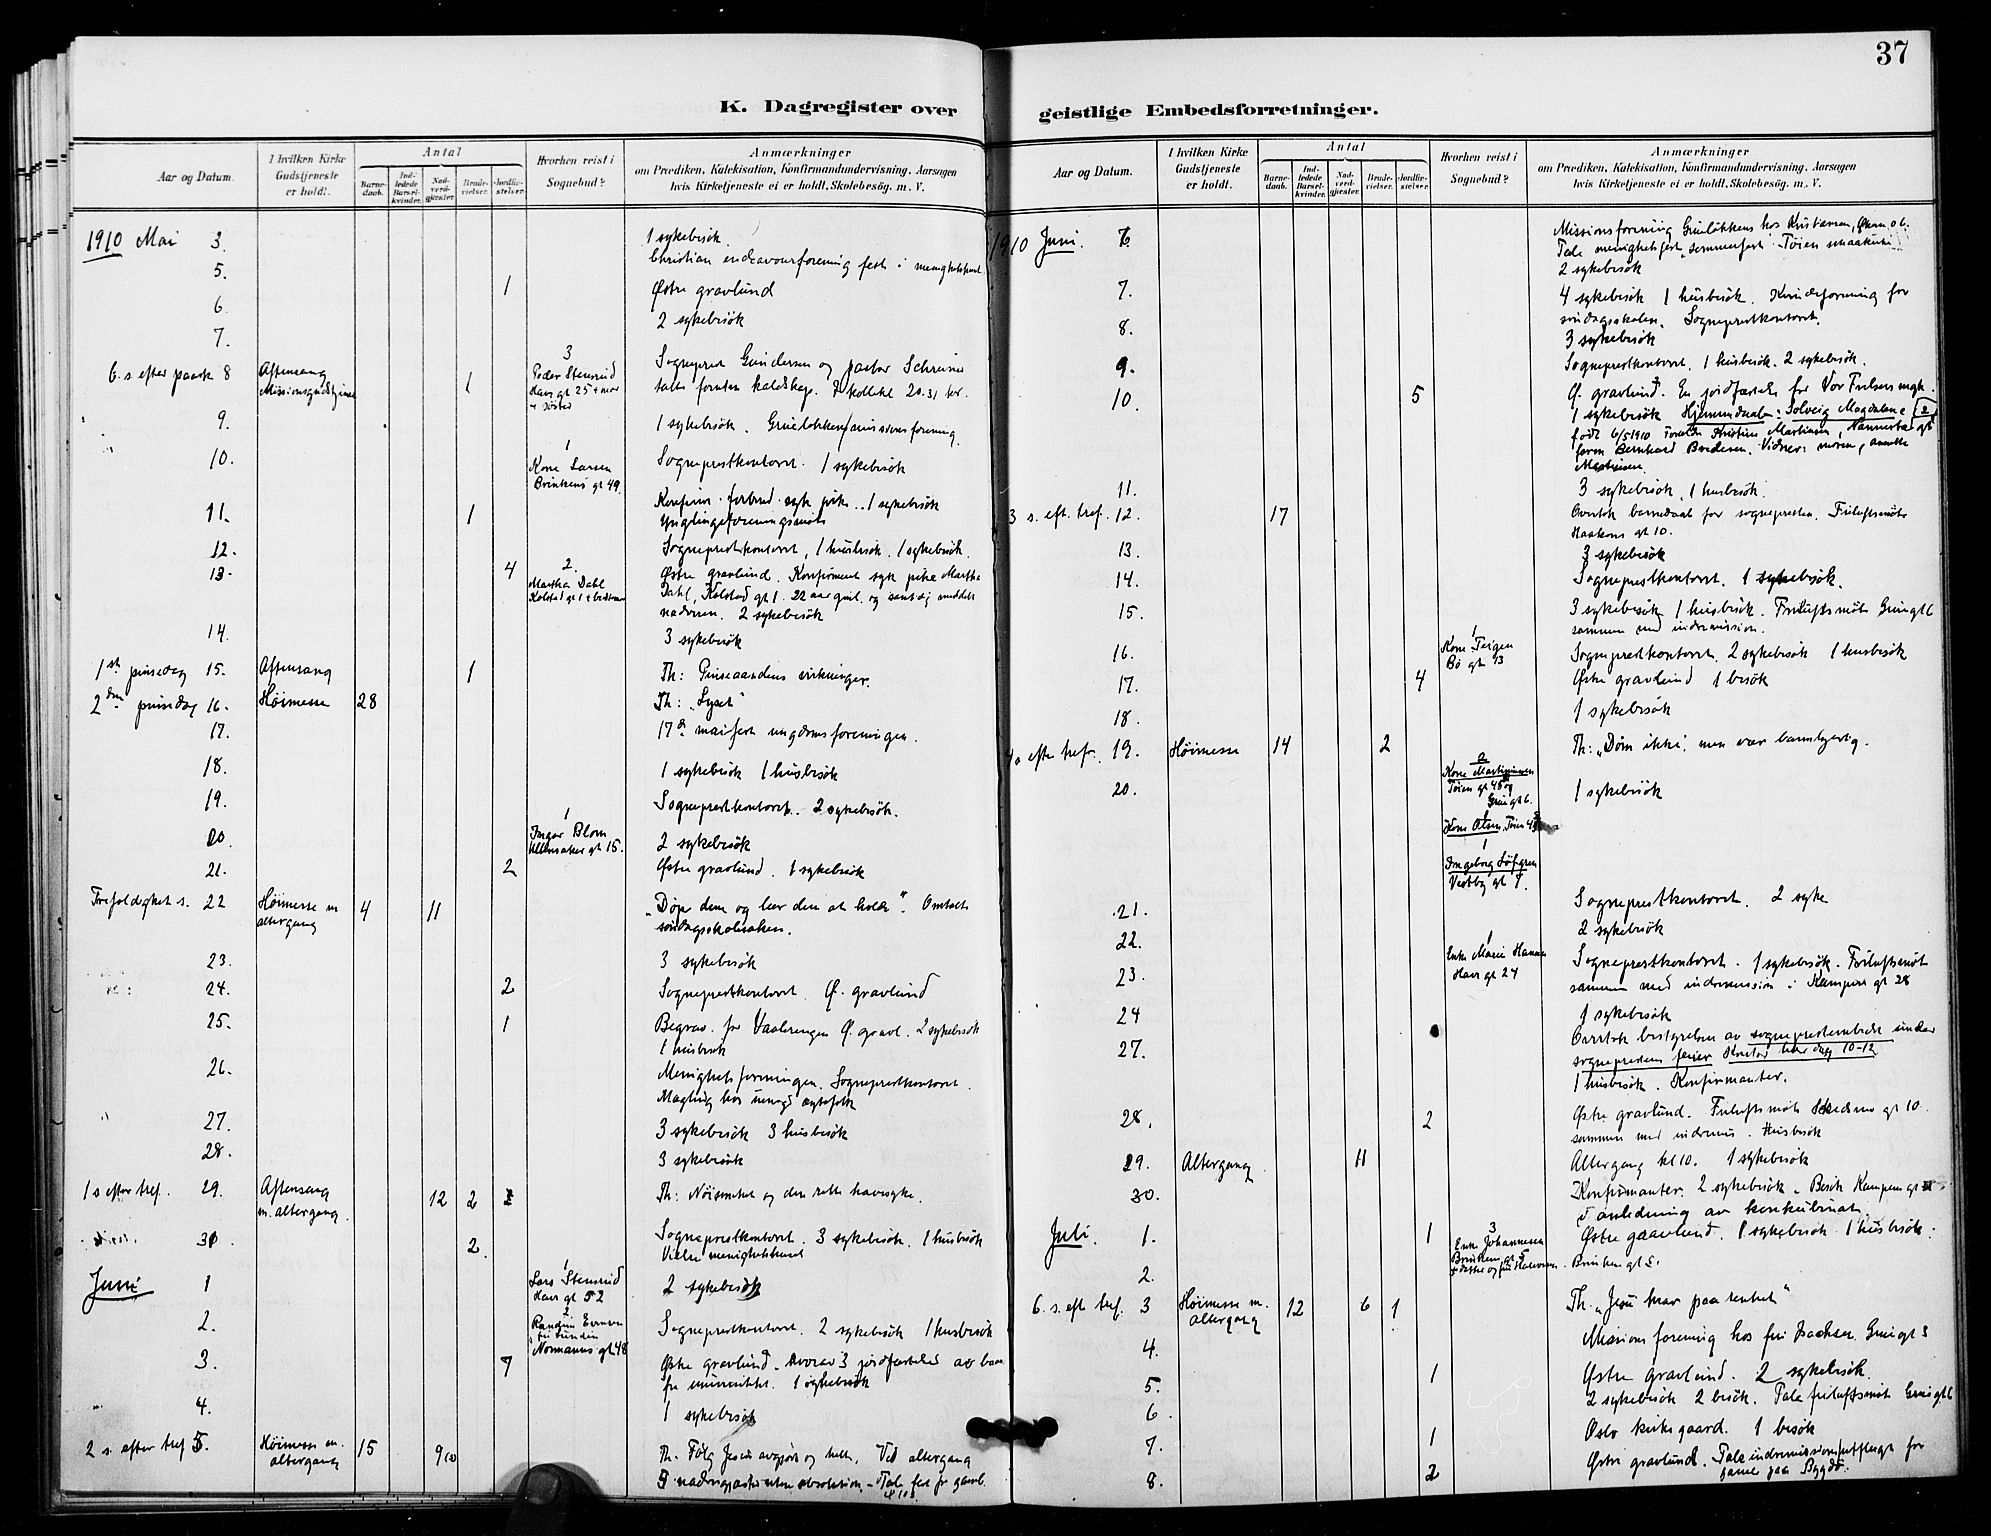 37
K. Dagregister over
Aar og Datum.
I hvilken Kirke Gudstjeneste er holdt.
Antal
Barnedaab.
Indledede Barselkvinder.
Nadverdgjæster.
Brudevielser.
Jordfæstelser.
Hvorhen reist i Sognebud?
Anmærkninger
om Prædiken, Katekisation, Konfirmandundervisning. Aarsagen
hvis Kirketjeneste ei er holdt, Skolebesøg. m. V.
1910 Mai 3. 1 sykebesök.
Christian endeavourforening fest i menighetshuset
5. 1 Østre gravlund
6. 2 sykebesök
7.
6. s. efter paask 8 Aftensang 1 3 Sogneprest Gundersen og pastor Schreiner
Missionsgudstjeneste Peder Stensrud talte foruten kaldskap. Kollekt 20.31 kr.
Havr gt 25 + mor
+ söster
9. 1 sykebesök. Grünerlökken missionsforening.
10. 1 Sogneprestkontoret. 1 sykebesök
Kone Larsen
Brinkens gt 49.
11. 1 Konfirm. forbered. syk pike. 1 sykebesök
Ynglingeforeningsmöte
12. Sogneprestkontoret, 1 husbesök. 1 sykebesök.
13. 4 2. Østre gravlund. Konfirmert syk pike Martha
Martha Dahl Dahl, Kolstad gt 1. 22 aar gml. og samtidig meddelt
Kolstad gt 1 nadveren. 2 sykebesök
14. 3 sykebesök
1ste pinsedag 15. Aftensang 1 Th: Pinseaandens virkninger.
2den pinsedag 16. Höimesse 28 Th: "Lyset"
17. 17de maifest ungdomsforeningen.
18. 1 sykebesök 1 husbesök
19. Sogneprestkontoret. 2 sykebesök.
20. 1 2 sykebesök
Ingar Blom
Ullensaker gt 15.
21. 2 Østre gravlund. 1 sykebesök
Trefoldighet s. 22 Höimesse m 4 11 "Döp dem og lær dem at holde". Omtalt
altergang söndagsskolesaken.
23. 3 sykebesök
24. 2 Sogneprestkontoret. Ø. gravlund
25. 1 Begrav. for Vaalerengen Ø. gravl. 2 sykebesök
1 husbesök
26. Menighetsforeningen. Sogneprestkontoret.
Mægling hos uenigt ægtefolk
27. 3 sykebesök 3 husbesök
28. 3 sykebesök
1 s efter tref. 29. Aftensang 12 2 Th: Nöisomhet og den rette havesyke.
m. altergang.
31. 2. Sogneprestkontoret. 3 sykebesök. 1 husbesök
Vielse menighetshuset
Juni 1 1 2 sykebesök
Lars Stensrud
Havr gt 52
2. 2 Sogneprestkontoret. 2 sykebesök 1 husbesök
Normanns gt 48
3. 7 Østre gravlund. Hvorav 3 jordfæstelse av barn
fra universitet. 1 sykebesök
4. 1 sykebesök
2 s. efter tref 5. Höimesse m. 15 9 Th. Fölg Jesus avgjort og helt. Ved altergang
altergang nadvergjæster uten absolution. - Tale fest for gamle

geistlige Embedsforretninger.
Aar og Datum.
I hvilken Kirke Gudstjeneste er holdt.
Antal
Barnedaab.
Indledede Barselkvinder.
Nadverdgjæster.
Brudevielser.
Jordfæstelser.
Hvorhen reist i Sognebud?
Anmærkninger
om Prædiken, Katekisation, Konfirmandundervisning. Aarsagen
hvis Kirketjeneste ei er holdt, Skolebesøg. m. V.
1910 Juni. 6. Missionsforening Grünerlökkens hos Kristiansen,
Tale menighetsfest, sommerfest Töien
2 sykebesök
7. 4 sykebesök 1 husbesök. Kvindeforening for
söndagsskolen. Sogneprestkontoret.
8. 3 sykebesök
9. Sogneprestkontoret. 1 husbesök. 2 sykebesök.
10. 5 Ø. gravlund. En jordfæstet for Vor Frelsers mgh.
1 sykebesök Hjemmedaab: Solveig Magdalene
födt 6/5 1910 Forældre Kristine Martinsen, Hammerstad gt
farm Bernhard Bredesen. Vidner: moren, Annette
Martinsen
11. 3 sykebesök, 1 husbesök.
3 s. eft. tref. 12. 17 Overtok barnedaab for sognepresten. Friluftsmöte
Haakons gt 10.
13. 3 sykebesök
14. Sogneprestkontoret. 1 sykebesök.
15. 3 sykebesök 1 husbesök. Friluftsmöte Grüngt 6
sammen med indremission.
16. 1 Sogneprestkontoret. 2 sykebesök 1 husbesök
Kone Teigen
Bö gt 13
17. 4 Østre gravlund 1 besök
18. 1 sykebesök
4 s efter tref. 19. Höimesse 14 2 Th: "Döm ikke", men vær barmhjertig.
20. 2 1 sykebesök
Kone Martinsen
Töien gt 48 og
Grüngt 6.
1
Kone Olsen, Töien 45
1
Ingeborg Löfgren
Vestby gt 7.
21. Sogneprestkontoret. 2 syke
22. 2 sykebesök
23. 1 Sogneprestkontoret. 1 sykebesök. Friluftsmöt
Enke Marie Hansen sammen med indremission i Kampens gt 28
Havr gt 24
24 1 sykebesök
27. Overtok bestyrelsen av sogneprestembedet under
sogneprestens ferier Kontor hver dag 10-12
1 husbesök. Konfirmanter.
28. 2 Østre gravlund. Friluftsmöte Skedsmo gt 10.
sammen med indremis. Husbesök
29. Altergang 11 Altergang kl 10. 1 sykebesök
30. Konfirmanter. 2 sykebesök. Besök Kampens gt
i anledning av konkubinat
Juli. 1. 1 3 Østre gravlund. 1 sykebesök. 1 husbesök.
Enke Johannesen Brinken gt 5.
Brinkens gt 5
2.
6. s. eft tref. 3 Höimesse m. 12 6 1 Th. "Jesu krav paa renhet"
altergang
4. Missionsforening hos fru Isachsen. Grüngt 3
5. 1 Østre gravlund. 2 sykebesök.
6. 2 sykebesök 2 besök. Tale friluftsmöte Grüngt 6
7. 1 Oslo kirkegaard. 1 besök
8. 2 Østre gravlund. Tale indremissionsutflugt for
gamle paa Bygdö.